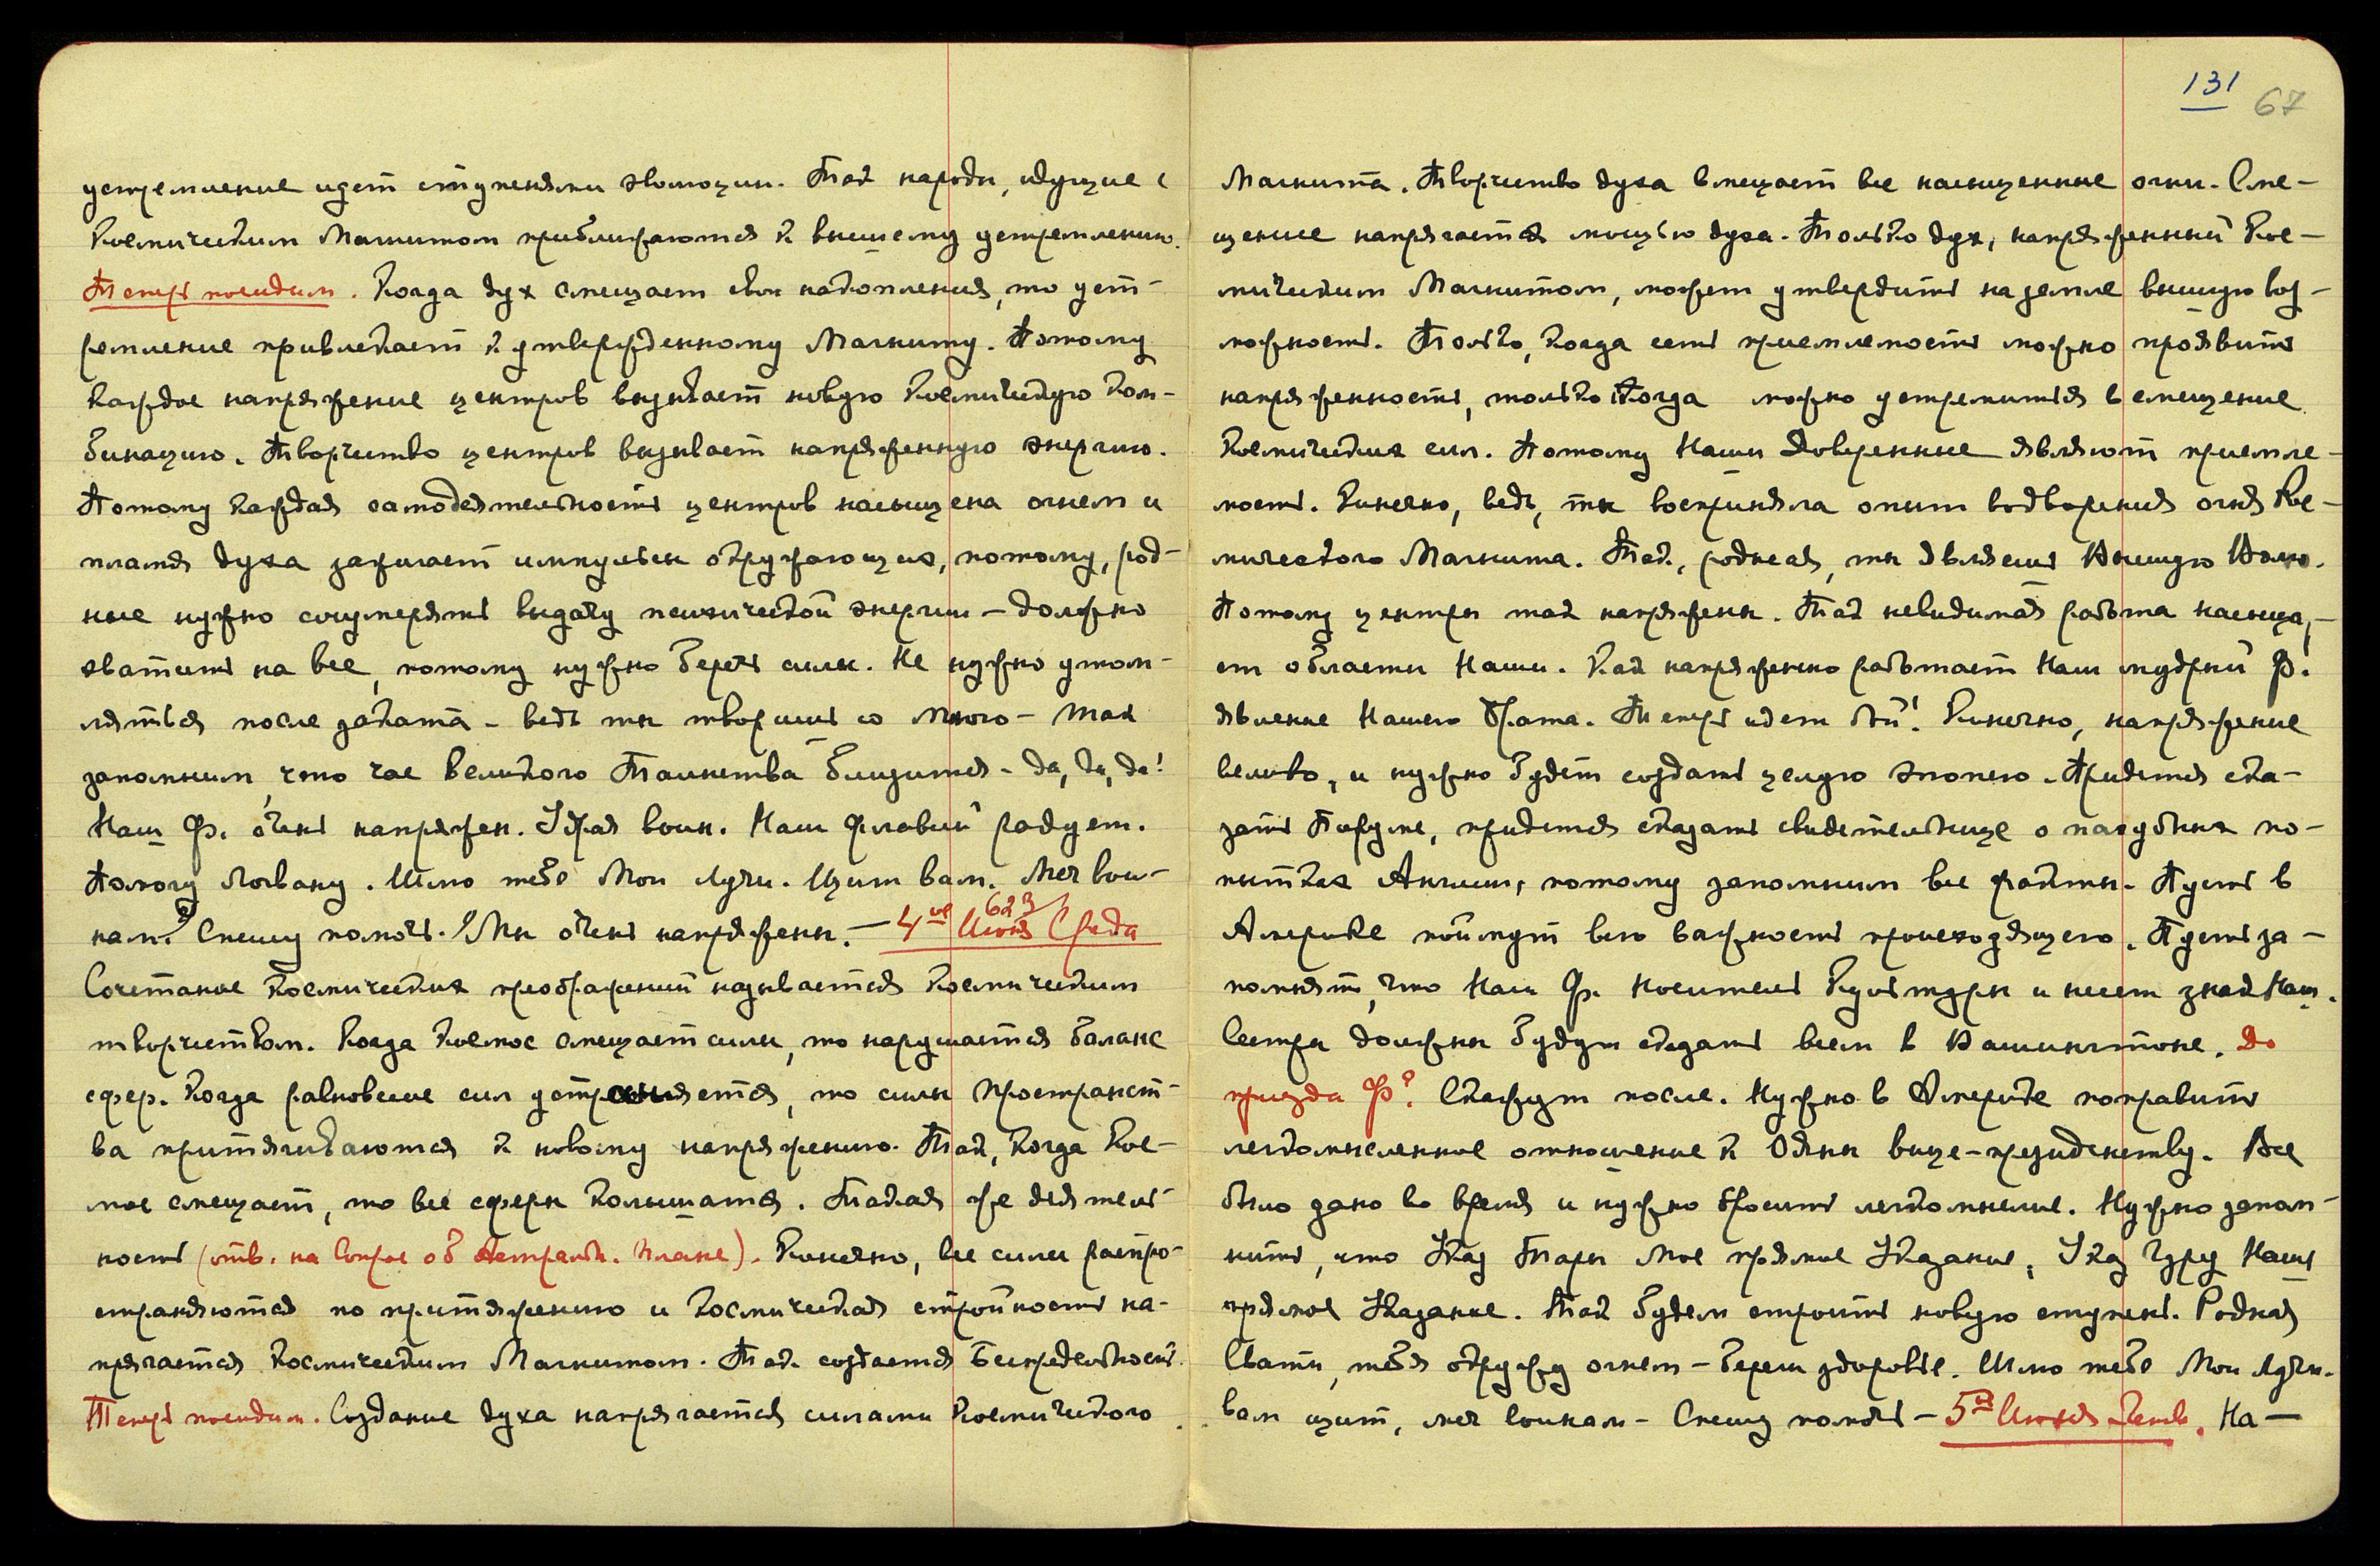 131 67
устремление идет ступенями эволюции. Так народы, идущие с
Космическим Магнитом приближаются к высшему устремлению.
Теперь посидим. Когда дух смещает свои накопления, то уст-
ремление привлекает к утвержденному Магниту. Потому
каждое напряжение центров вызывает новую Космическую ком-
бинацию. Творчество центров вызывает напряженную энергию.
Потому каждая самодеятельность центров насыщена огнем и
пламя духа зажигает импульсы окружающих, потому, род-
ные нужно соизмерять выдачу психической энергии – должно
хватить на все, потому нужно беречь силы. Не нужно утом-
ляться после заката – ведь ты творишь со Мною – так
запомним, что час Великого Таинства близится – да, да, да!
Наш Ф. очень напряжен. Удрая воин. Наш радует.
Помогу Логвану. Шлю тебе Мои Лучи. Щит вам. Меч вои-
нам. Спешу помочь. Мы очень напряжены. – 4ое Июня Среда
623
Сочетание Космических преображений называется Космическим
творчеством. Когда Космос смещает силы, то нарушается баланс
сфер. Когда равновесие сил устраняется, то силы Пространст-
ва притягиваются к новому напряжению. Так, когда Кос-
мос смещает, то все сферы колышатся. Такая же деятель-
ность (отв. на вопрос об Астральн. плане). Конечно, все силы распро-
страняются по притяжению и космическая стройность на-
прягается Космическим Магнитом. Так создается Беспредельность.
Теперь посидим. Создание духа напрягается силами Космического
Магнита. Творчество духа вмещает все насыщенные огни. Сме-
щение напрягается мощью духа. Только дух, напряженный Кос-
мическим Магнитом, может утвердить на земле высшую воз-
можность. Только, когда есть приемлемость можно проявить
напряженность, только тогда можно устремиться в смещение
Космических сил. Потому Наши Доверенные являют приемле-
мость. Конечно, ведь, ты восприняла опыт водворения огня Кос-
мического Магнита. Так, родная, ты являешь Высшую Волю.
Потому центры так напряжены. Так невидимая работа насыща-
ет области Наши. Как напряженно работает Наш мудрый Ф.
явление Нашего Брата. Теперь идет бой! Конечно, напряжение
велико, и нужно будет создать целую эпопею. Придется ска-
зать Поруме, придется сказать свидетельнице о пагубных по-
пытках Англии, потому запомним все факты. Пусть в
Америке поймут всю важность происходящего. Пусть за-
помнят, что Наш Ф. носитель Культуры и несет знак Наш.
Сестры должны будут сказать всем в Вашингтоне. До
приезда Ф? Скажут после. Нужно в Америке поправить
легкомысленное отношение к Ояны вице-президентству. Все
было дано во время и нужно бросить легкомыслие. Нужно запом-
нить, что Указ Тары Мое прямое Указание, Указ Гуру Наше
прямое Указание. Так будем строить новую ступень. Родная
Свати, тебя окружу огнем – береги здоровье. Шлю тебе Мои Лучи.
Вам щит, меч воинам – Спешу помочь – 5ое Июня Четв. На –